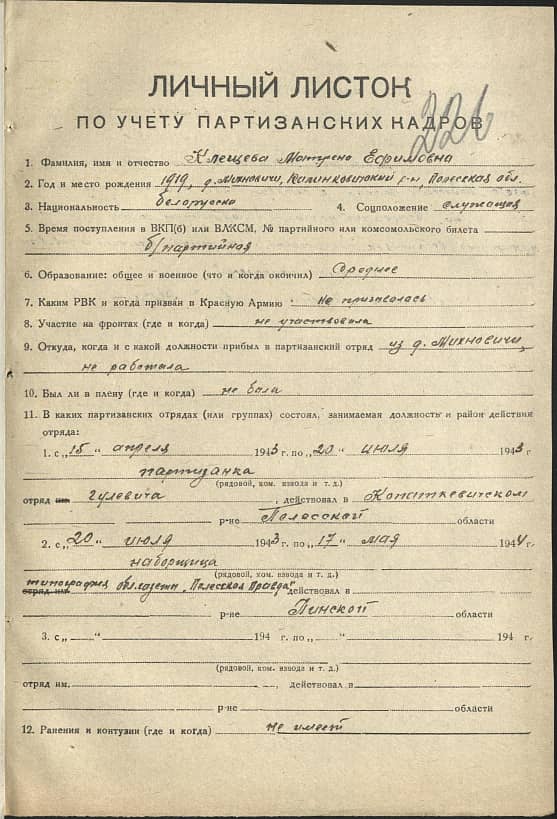 226
ЛИЧНЫЙ ЛИСТОК
ПО УЧЕТУ ПАРТИЗАНСКИХ КАДРОВ
1. Фамилия, имя и отчество Клещева Матрена Ефимовна
2. Год и место рождения 1919, д. Михновичи, Калинковичский р-н, Полесская обл.
3. Национальность белорусска 4. Соцположение служащая
5. Время поступления в ВКП(б) или ВЛКСМ, № партийного или комсомольского билета
б/партийная
6. Образование: общее и военное (что и когда окончил) Среднее
7. Каким РВК и когда призван в Красную Армию не призывалась
8. Участие на фронтах (где и когда) не участвовала
9. Откуда, когда и с какой должности прибыл в партизанский отряд из д. Михновичи,
не работала
10. Был ли в плену (где и когда) не была
11. В каких партизанских отрядах (или группах) состоял, занимаемая должность и район действия
отряда:
1. с „15 “ апреля 1943 г. по „20 “ июля 1943 г.
партизанка
(рядовой, ком. взвода и т. д.)
отряд им. Гулевича, действовал в Копаткевичском
р-не Полесской области
2. с „20 “ июля 1943 г. по „17 “ мая 1944 г.
наборщица
(рядовой, ком. взвода и т. д.)
типография обл. газеты „Полесская Правда“
отряд им. действовал в
р-не Пинской области
3. с „ “ 194 г. по „ “ 194 г.
(рядовой, ком. взвода и т. д.)
отряд им. , действовал в
р-не области
12. Ранения и контузии (где и когда) не имеет